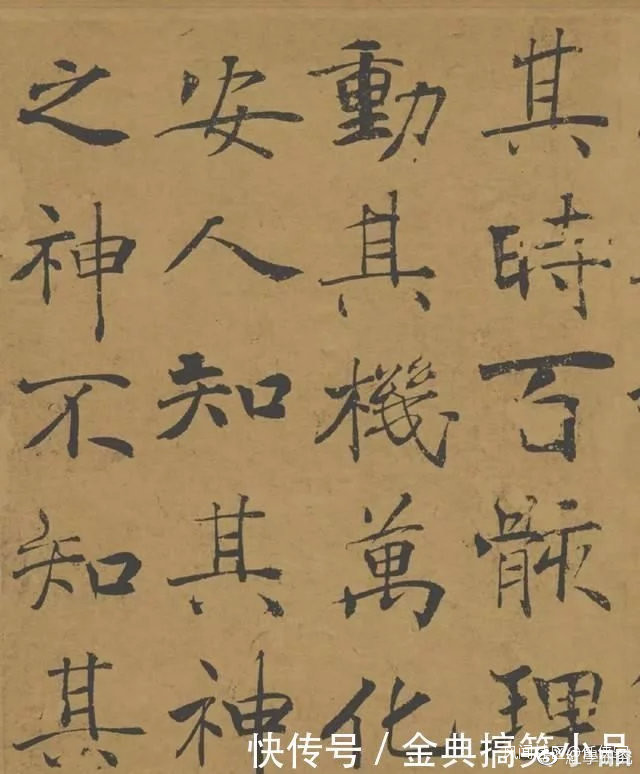 其時百骸理
動其機萬化
安人知其神
之神不知其
快传号／金典搞笑小品